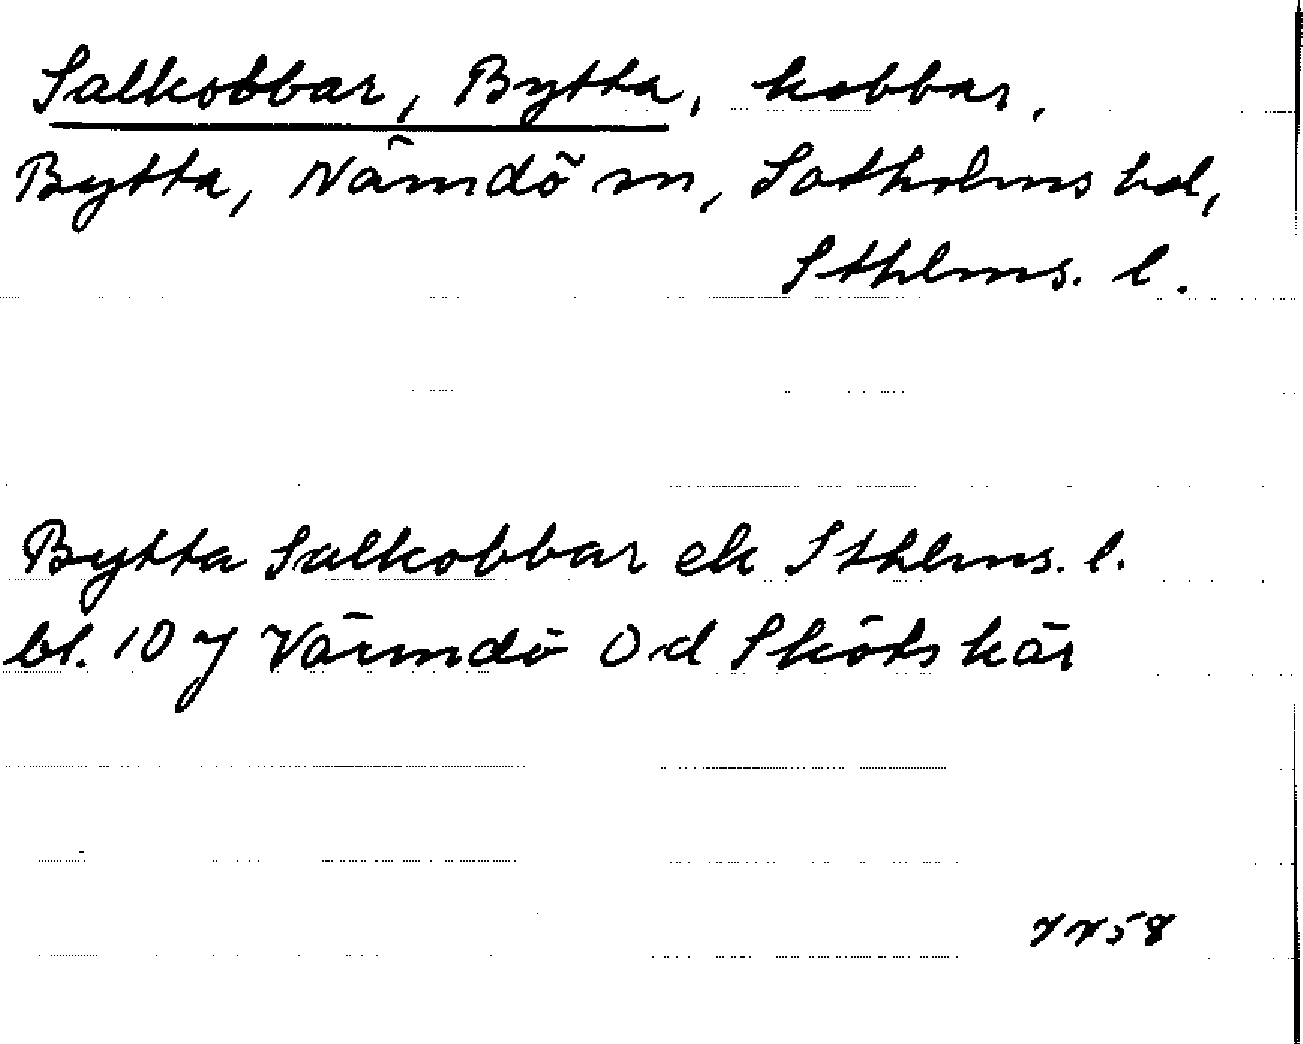 Salkobbar, Bytta, kobbar,
Bytta, Nämdö sn, Sotholms hd,
Sthlms. l.
Bytta Salkobbar ek Sthlms. l.
bl. 10 y Värmdö Od Skötskär